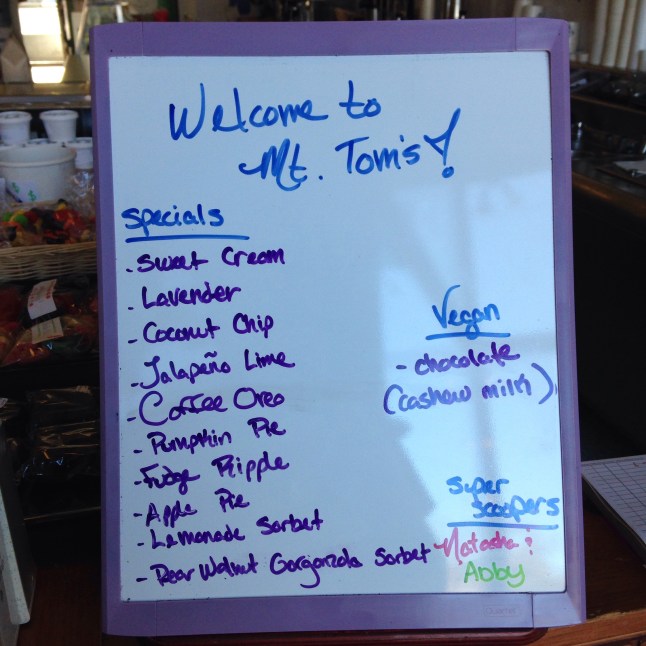 Welcome to
Mt. Tom's!
Specials
- Sweet Cream
- Lavender
- Coconut Chip
- Jalapeño Lime
- Coffee Oreo
- Pumpkin Pie
- Fudge Ripple
- Apple Pie
- Lemonade Sorbet
- Pear Walnut Gorgonzola Sorbet
Vegan
- chocolate
(cashew milk)
Super
Scoopers
Natasha &
Abby